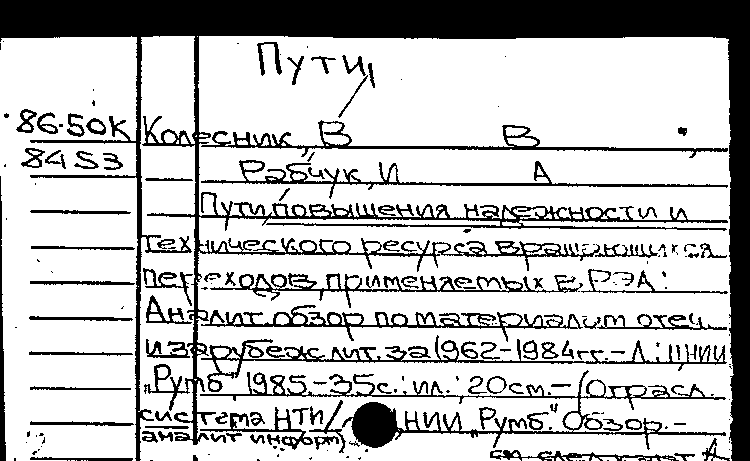 Пути
86-50К Колесник, В В ,
84 53 Рабчук, И А
Пути повышения надежности и
технического ресурса вращающихся
переходов, применяемых в РЭА:
Аналит. обзор по материалам отеч.
и зарубеж лит. за 1962-1984 гг. - Л.: ЦНИИ
„Румб", 1985.-35с.: ил.; 20см.- (Отрасл.
система НТИ/ ЦНИИ „Румб". Обзор.-
аналит информ)